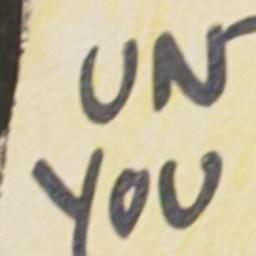 UN
YOU